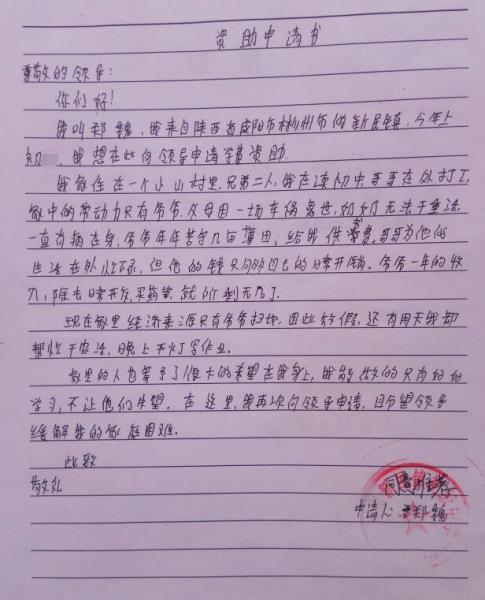 资助申请书
尊敬的领导:
你们好!
我叫郑魏,我来自陕西省咸阳市彬州市的新民镇,今年上
初 ,我想在此向领导申请学费资助.
我家住在一个小山村里,兄弟二人,我在读初中,哥哥在外打工,
家中的劳动力只有爷爷,父母因一场车祸离世,奶奶无法干重活,
一直有病在身,爷爷年年苦守几亩薄田,给我供学费,哥哥为他的
生活在外忙碌,但他的钱只够自己的日常开销。爷爷一年的收
入,除去日常开支,买药等,就所剩无几了.
现在家里经济来源只有爷爷扫地,因此放假,还有周天我都
帮忙干农活,晚上开灯写作业。
家里的人也寄予了很大的希望在我身上,我能做的只有好好
学习,不让他们失望。在这里,我再次向领导申请,且希望领导
缓解我的家庭困难.
此致
敬礼
同意推荐
申请人: 郑魏